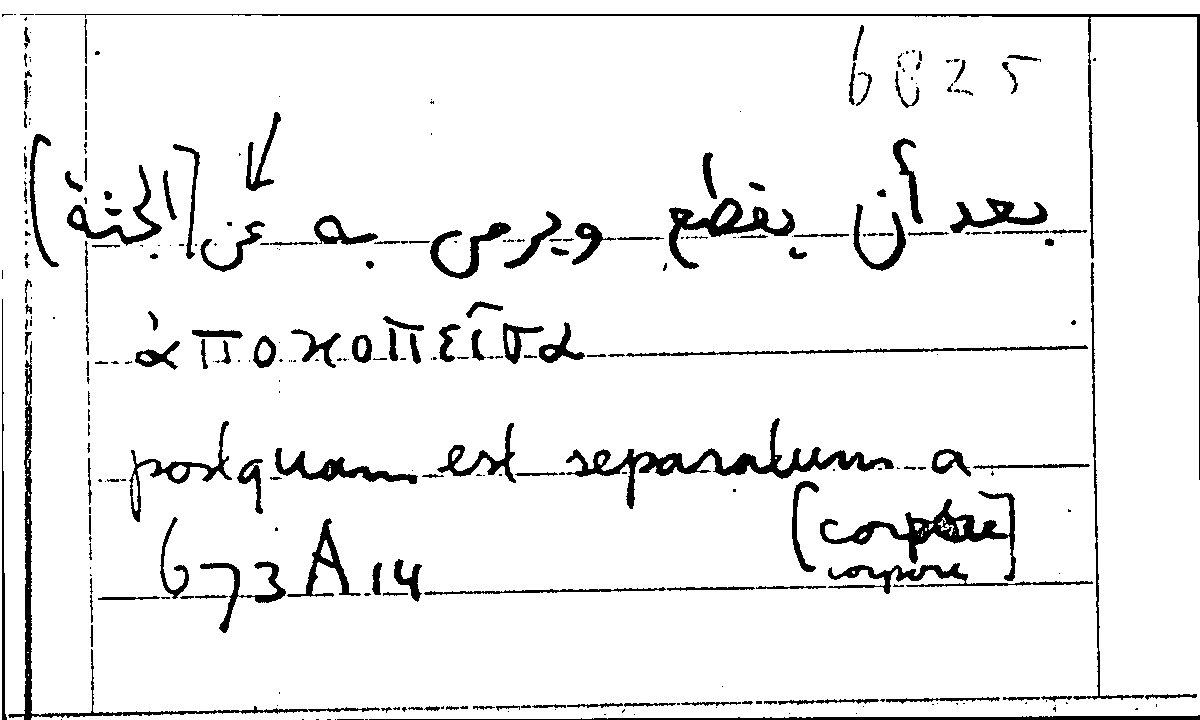 6825
بعد أن يقطع ويرمى به عن [الجثة]
ἀποκοπεῖσα
postquam est separatum a
[corpore]
673A14